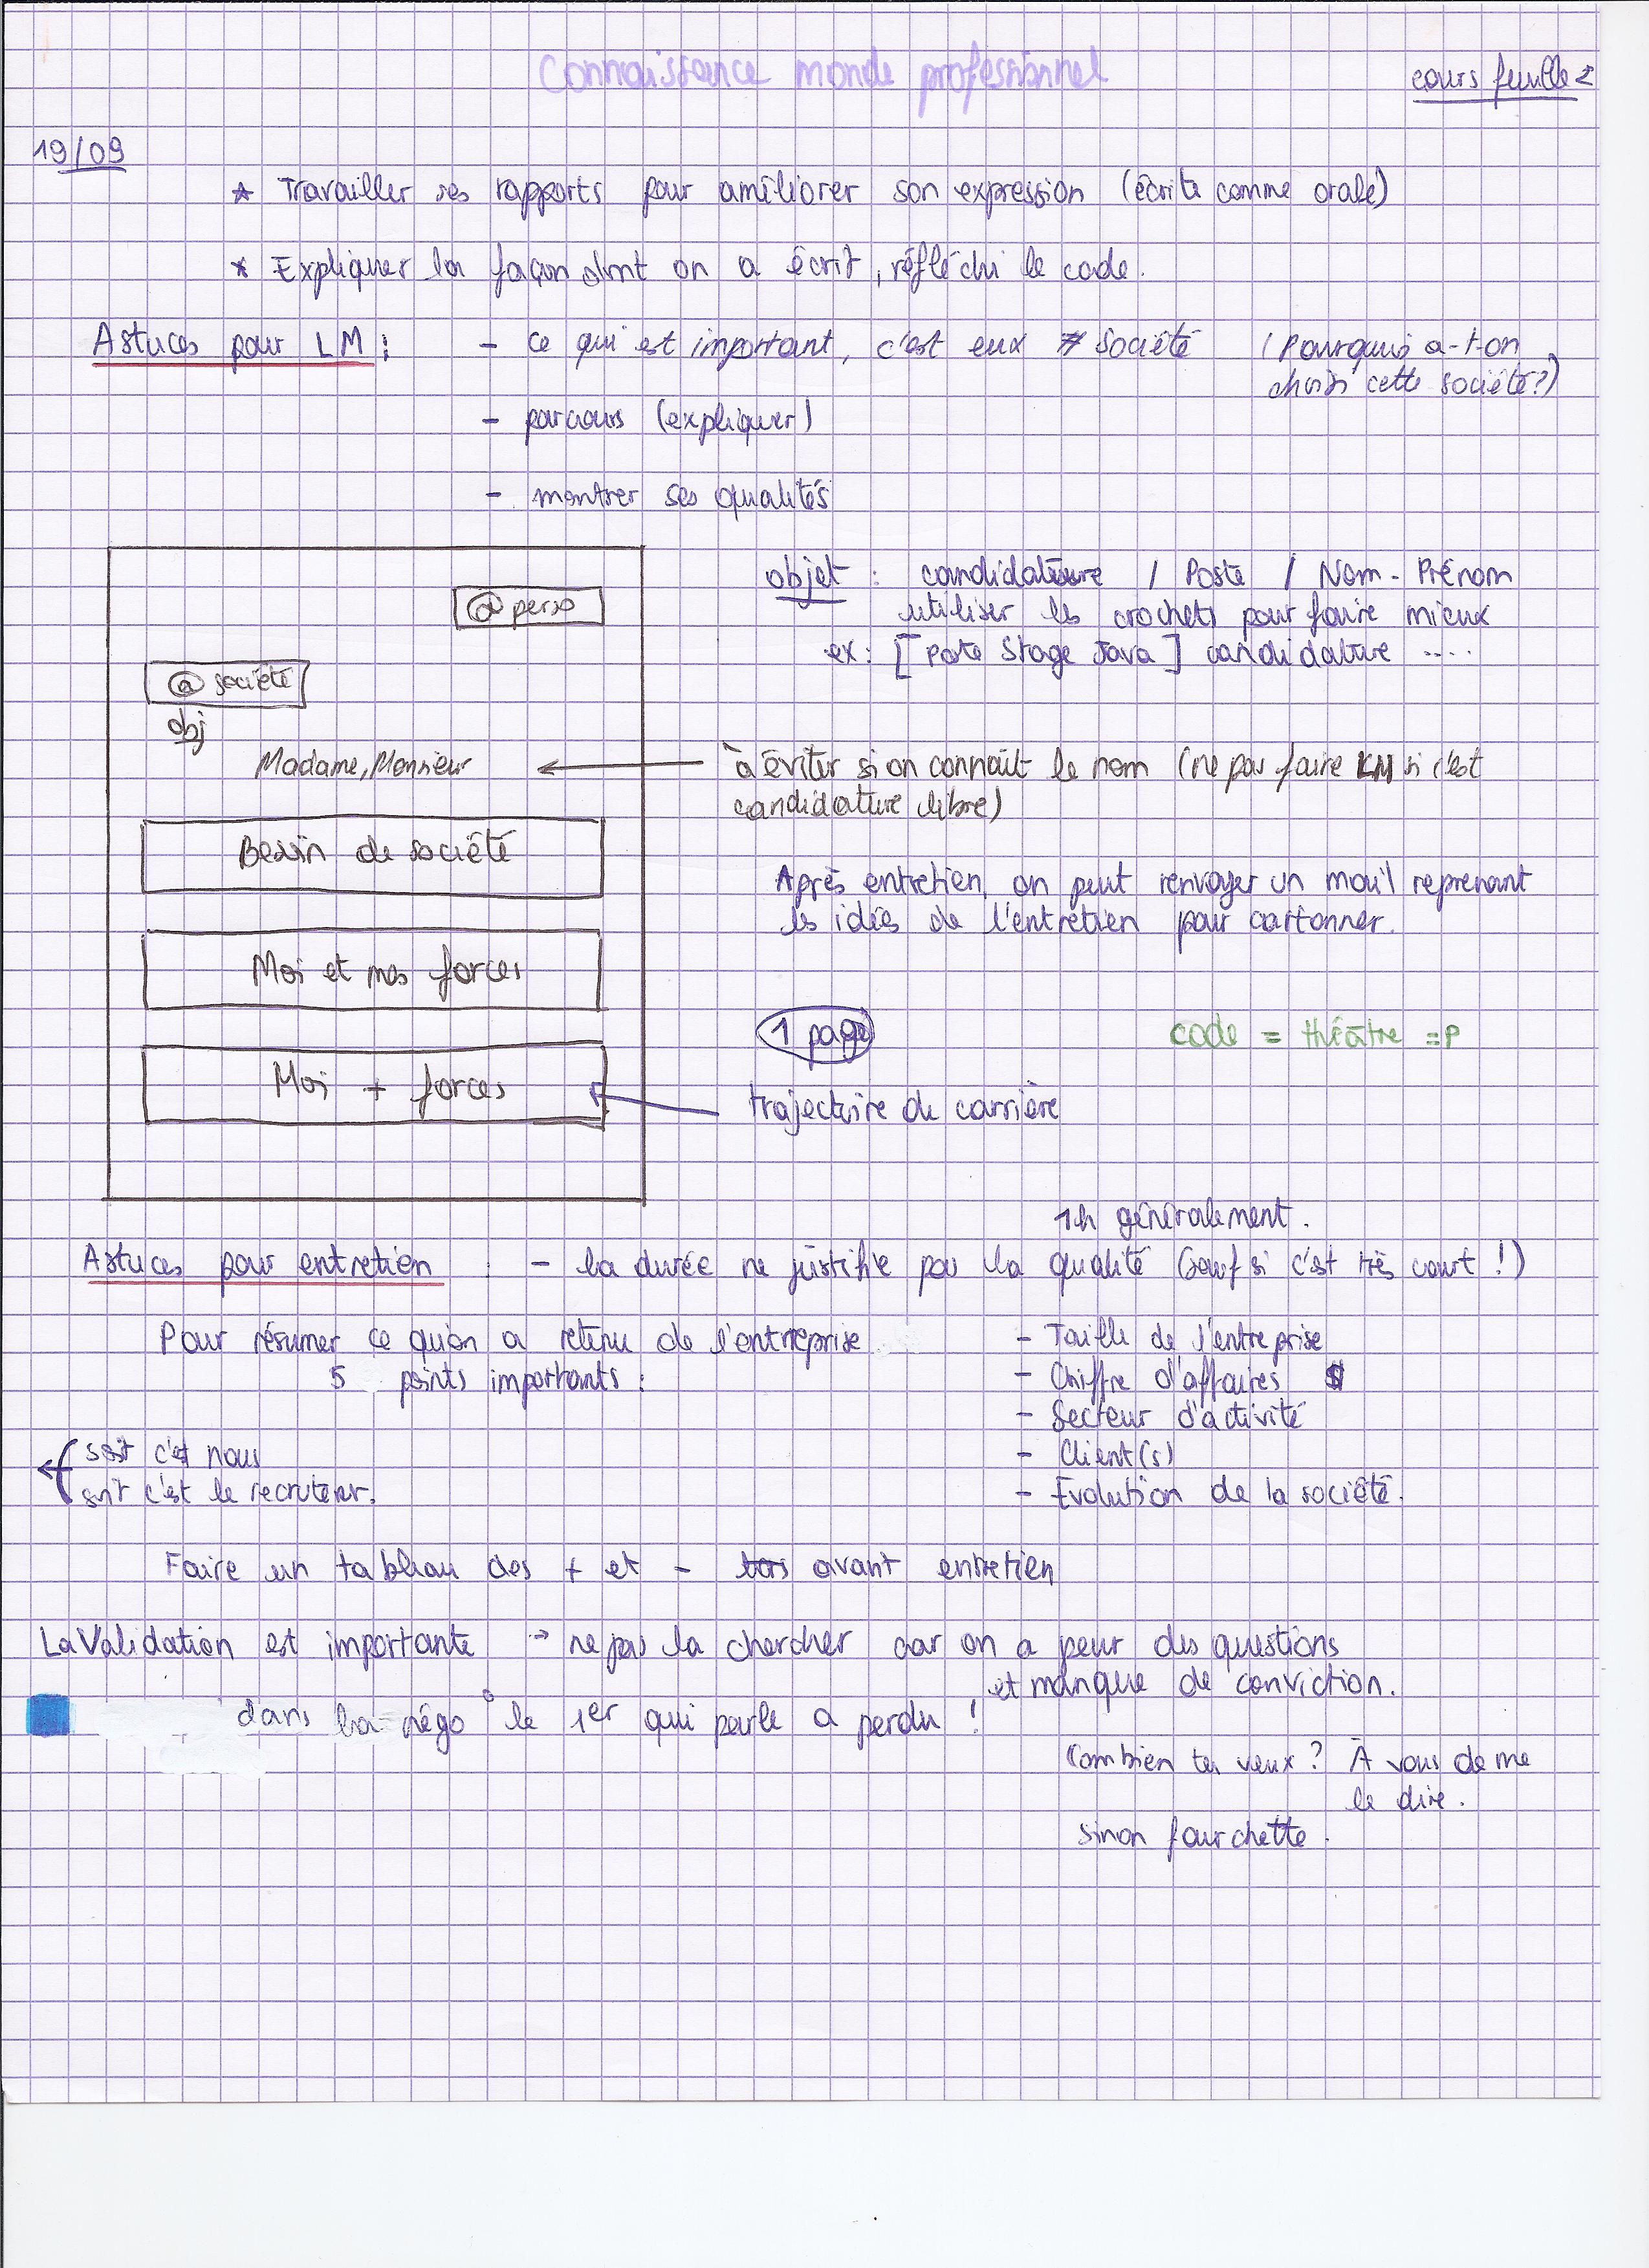 Connaissance monde professionnel
cours feuille 2
19/09
* Travailler ses rapports pour améliorer son expression (écrite comme orale)
* Expliquer la façon dont on a écrit, réfléchi le code.
Astuces pour LM : - ce qui est important, c'est eux ≠ société (Pourquoi a-t-on
choisi cette société?)
- parcours (expliquer)
- montrer ses qualités
@ perso
@ société
obj
Madame, Monsieur
Besoin de société
Moi et mes forces
Moi + forces
objet : candidature / Poste / Nom - Prénom
utiliser les crochets pour faire mieux
ex : [Poste Stage Java] candidature ....
à éviter si on connaît le nom (ne pas faire LM si c'est
candidature libre)
Après entretien, on peut renvoyer un mail reprenant
les idées de l'entretien pour cartonner.
1 page
code = théâtre =P
trajectoire de carrière
1h généralement.
Astuces pour entretien : - la durée ne justifie pas la qualité (sauf si c'est très court !)
Pour résumer ce qu'on a retenu de l'entreprise
5 points importants :
- Taille de l'entreprise
- Chiffre d'affaires $
- Secteur d'activité
- Client(s)
- Evolution de la société.
soit c'est nous
soit c'est le recruteur.
Faire un tableau des + et - lors avant entretien
La Validation est importante → ne pas la chercher car on a peur des questions
et manque de conviction.
dans la négo : le 1er qui parle a perdu !
Combien tu veux ? À vous de me
le dire.
sinon fourchette.